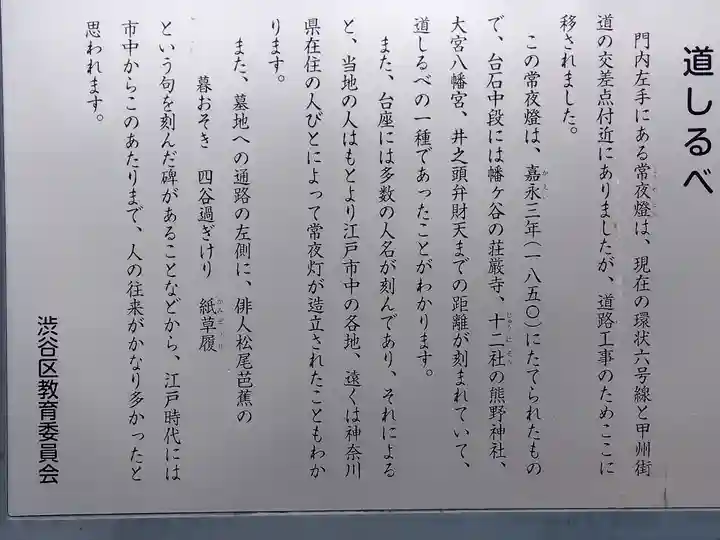 道しるべ
門内左手にある常夜燈は、現在の環状六号線と甲州街
道の交差点付近にありましたが、道路工事のためここに
移されました。
この常夜燈は、嘉永三年(一八五〇)にたてられたもの
で、台石中段には幡ヶ谷の荘厳寺、十二社の熊野神社、
大宮八幡宮、井之頭弁財天までの距離が刻まれていて、
道しるべの一種であったことがわかります。
また、台座には多数の人名が刻んであり、それによる
と、当地の人はもとより江戸市中の各地、遠くは神奈川
県在住の人びとによって常夜灯が造立されたこともわか
ります。
また、墓地への通路の左側に、俳人松尾芭蕉の
暮おそき 四谷過ぎけり 紙草履
という句を刻んだ碑があることなどから、江戸時代には
市中からこのあたりまで、人の往来がかなり多かったと
思われます。
渋谷区教育委員会